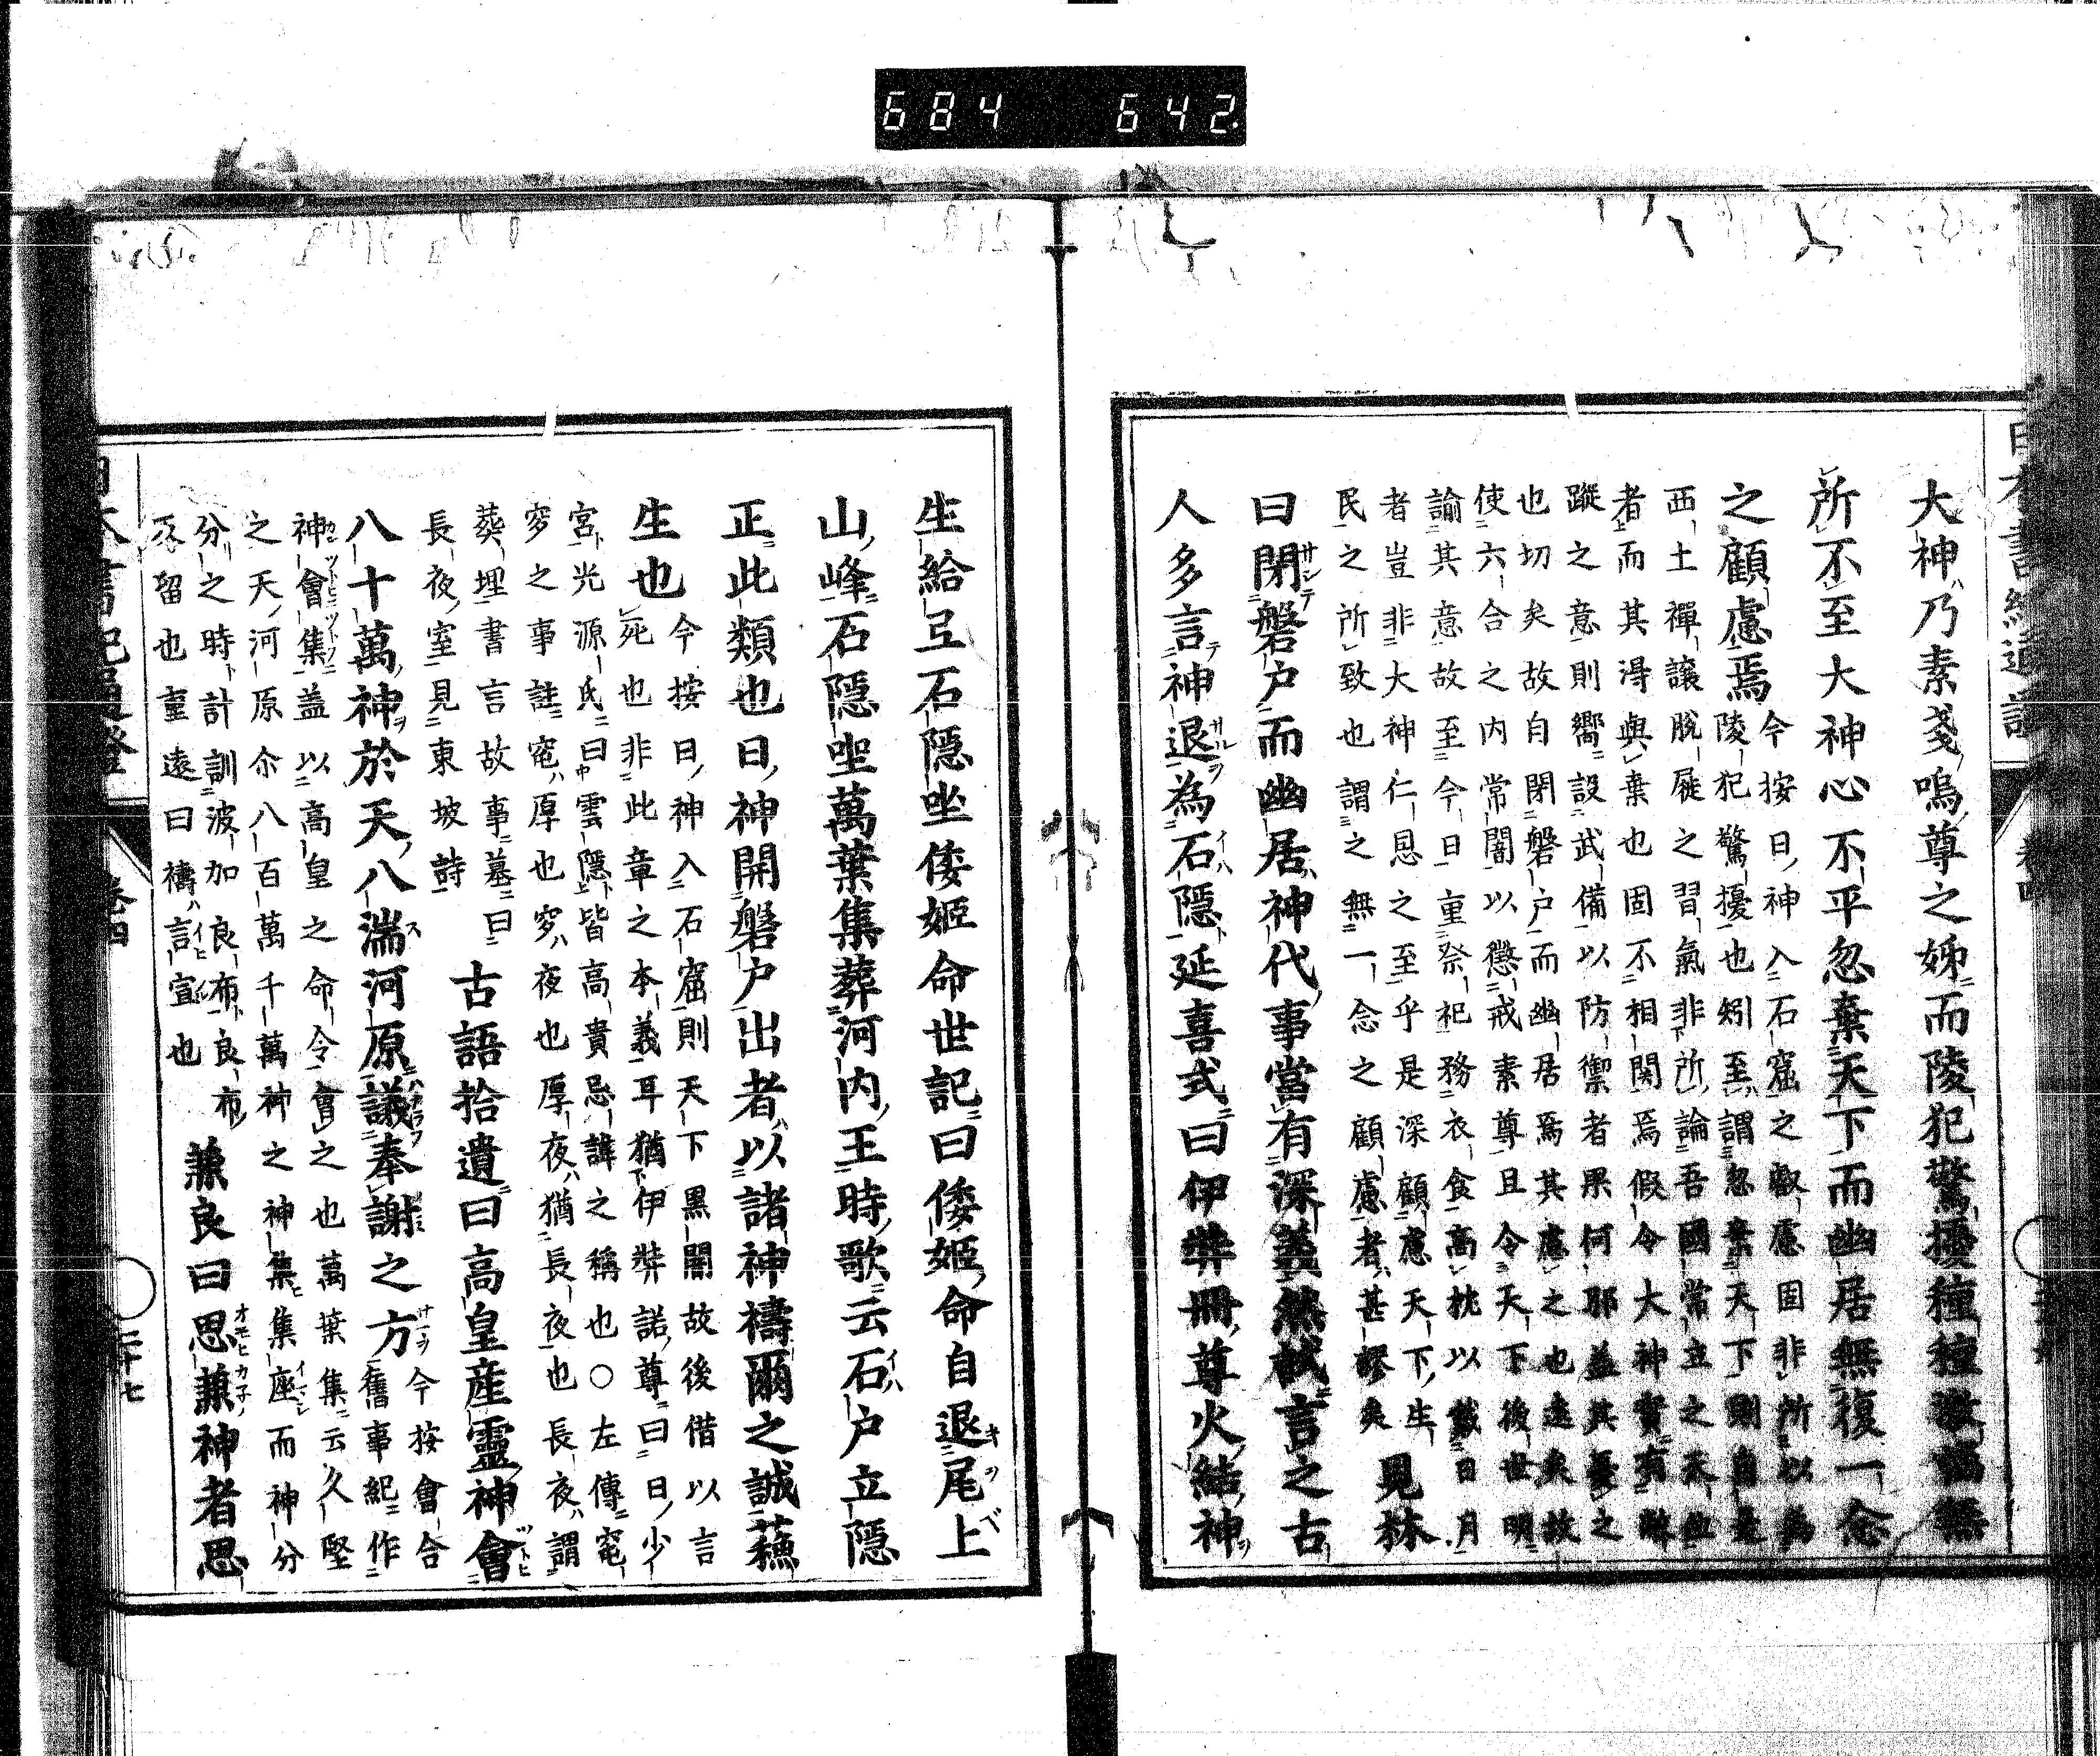 684 642
大神乃素戔嗚尊之姊而陵犯驚擾種種無
所不至大神心不平忽棄天下而幽居無復一念
之顧慮焉
今按曰神入石窟之叡慮固非所以為
陵犯驚擾也矧至謂忽棄天下則自是
西土禪讓脫屣之習氣非所論吾國常立之天
者而其得與棄也固不相関焉假令大神實有
蹤之意則嚮設武備以防禦者果何耶益其憂之
也切矣故自閉磐戶而幽居焉其慮之也遠矣故
使六合之内常闇以懲戒素尊且令天下後世明
諭其意故至今日重祭祀務衣食高枕以戴日月
者豈非大神仁恩之至乎是深顧慮天下生
民之所致也謂之無一念之顧慮者甚謬矣
見林
曰閉磐戶而幽居神代事當有深義然拭言之古
人多言神退為石隱延喜式曰伊弉冊尊火結神
生給弖石隱坐倭姬命世記曰倭姬命自退尾上
山峰石隱坐萬葉集葬河内王時歌云石戶立隱
正此類也曰神開磐戶出者以諸神禱爾之誠蘓
生也
今按曰神入石窟則天下黑闇故後借以言
死也非此章之本義耳猶伊弉諾尊曰日少
宮光源氏曰雲隱皆高貴忌諱之稱也○左傳窀
穸之事註窀厚也穸夜也厚夜猶長夜也長夜謂
葬埋書言故事墓曰
長夜室見東坡詩
古語拾遺曰高皇産靈神會
八十萬神於天八湍河原議奉謝之方
今按會合
舊事紀作
神會集盖以高皇之命令會之也萬葉集云久堅
之天河原尒八百萬千萬神之神集集座而神分
分之時計訓波加良布良布
不留也重遠曰禱言宣也
兼良曰思兼神者思
二十七